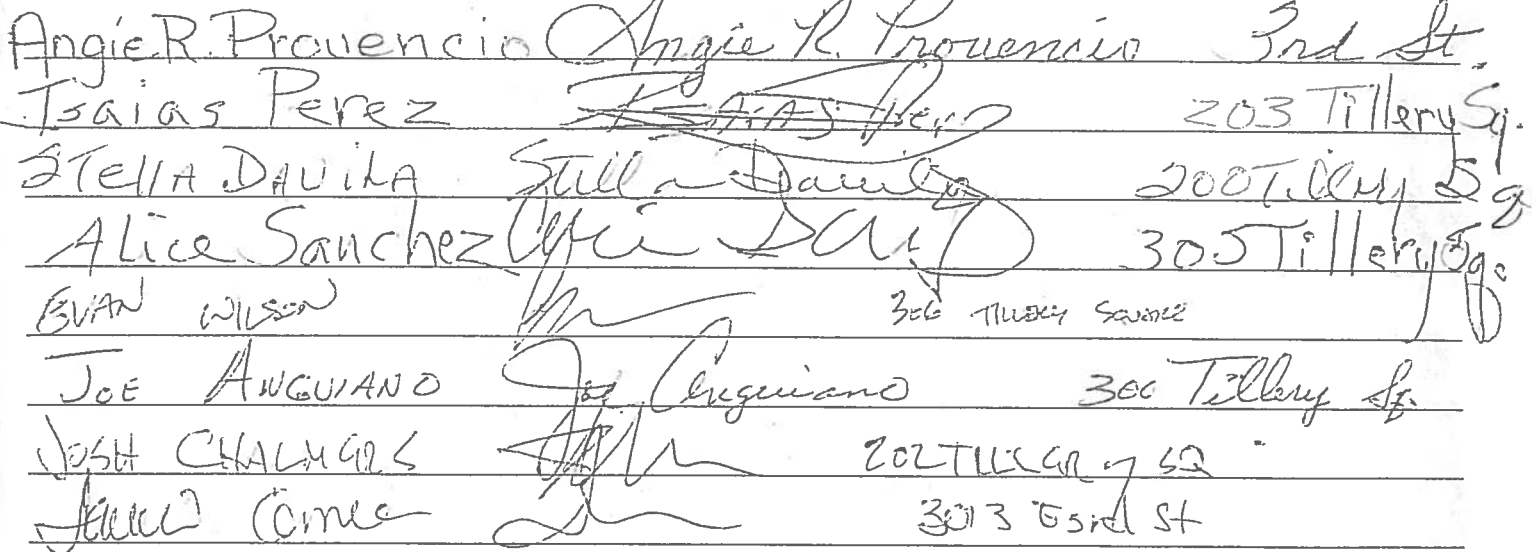 Angie R. Provencio Angie R. Provencio 3rd St.
Isaias Perez Isaias Perez 203 Tillery Sq.
STellA DAViLA Stella Davila 200 Tillery Sq
Alice Sanchez 305 Tillery Sq.
EVAN WILSON 306 TILLERY SQUARE
JOE ANGUIANO Joe Anguiano 300 Tillery Sq.
JOSH CHALMERS 202 TILLERY SQ
3013 E 3rd St